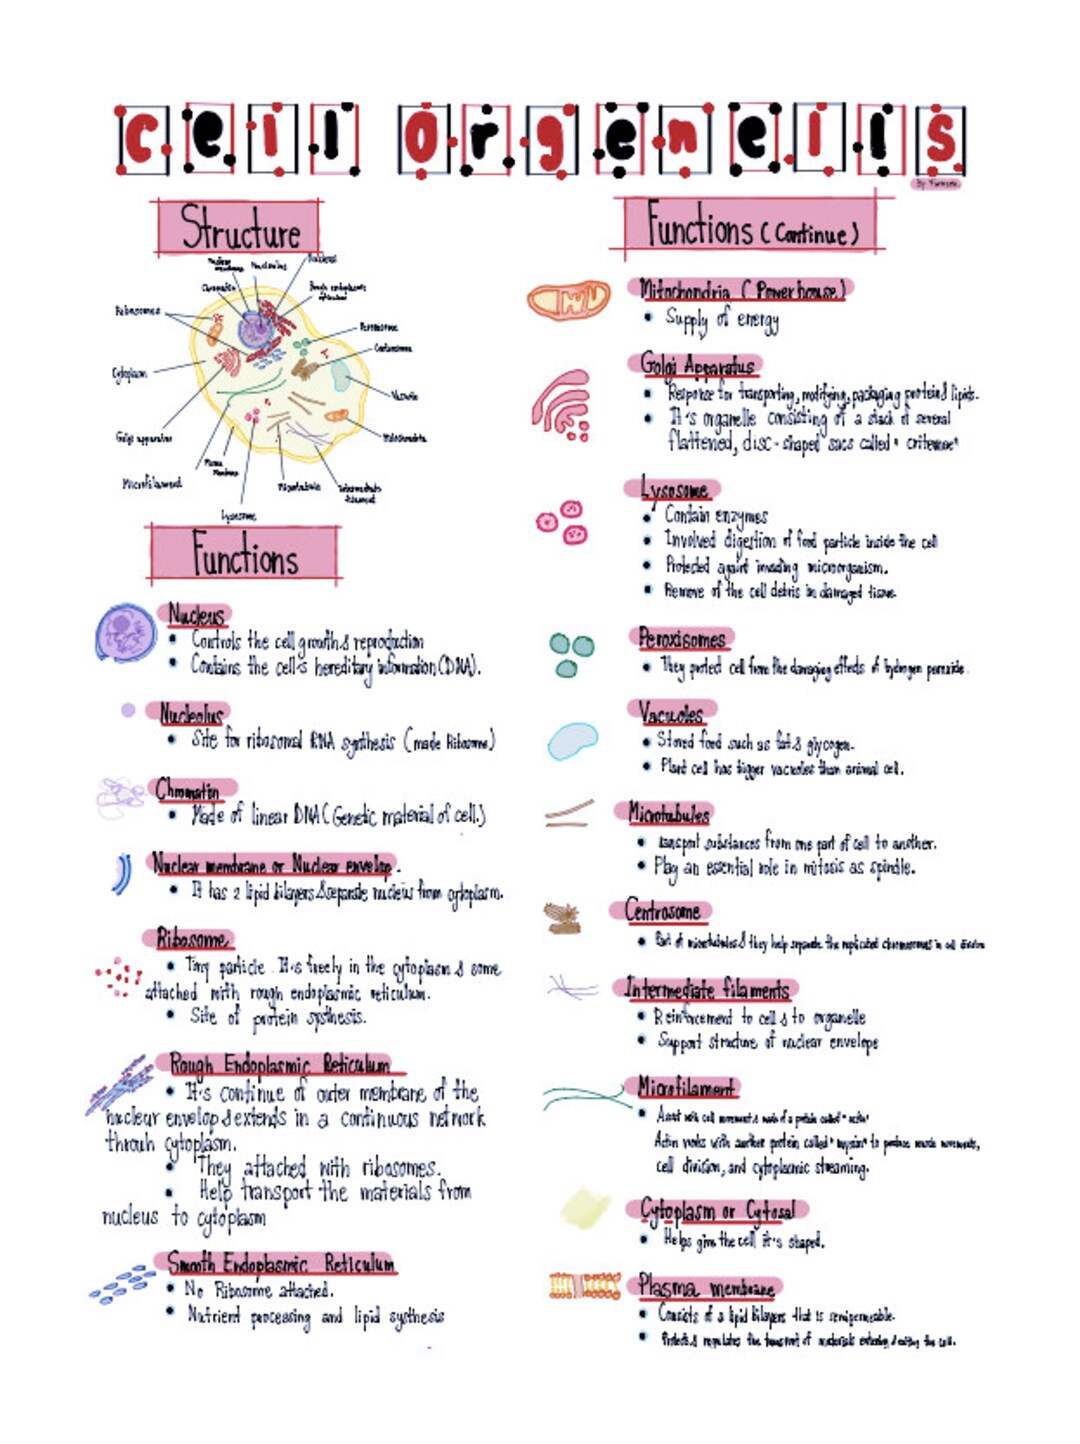 Cell Orgenells
Structure
Nucleolus
Chromatin
Ribosomes
Peroxisome
Centrosome
Cytoplasm
Vacuole
Golgi apparatus
Mitochondria
Plasma
Membrane
Microfilament
Microtubule
Intermediate
filament
Lysosome
Functions
Nucleus
• Controls the cell growth & reproduction
• Contains the cell's hereditary information (DNA).
Nucleolus
• Site for ribosomal RNA synthesis (made Ribosome)
Chromatin
• Made of linear DNA (Genetic material of cell.)
Nuclear membrane or Nuclear envelop.
• It has 2 lipid bilayers & separate nucleus from cytoplasm.
Ribosome
• Tiny particle. It's freely in the cytoplasm & some
attached with rough endoplasmic reticulum.
• Site of protein systhesis.
Rough Endoplasmic Reticulum
• It's continue of outer membrane of the
nuclear envelop & extends in a continuous network
throuh cytoplasm.
• They attached with ribosomes.
• Help transport the materials from
nucleus to cytoplasm
Smooth Endoplasmic Reticulum
• No Ribosome attached.
• Nutrient processing and lipid systhesis
Functions (Continue)
Mitochondria (Powerhouse)
• Supply of energy
Golgi Apparatus
• Response for transporting, modifying, packaging protein & lipids.
• It's organelle consisting of a stack of several
flattened, disc-shaped sacs called
Lysosome
• Contain enzymes
• Involved digestion of food particle inside the cell
• Protected againt invading microorganism.
• Remove of the cell debris in damaged tissue.
Peroxisomes
• They protect cell from the damaging effects of hydrogen peroxide.
Vacuoles
• Stored food such as fat & glycogen.
• Plant cell has bigger vacuoles than animal cell.
Microtubules
• transport substances from one part of cell to another.
• Play an essential role in mitosis as spindle.
Centrosome
• Part of microtubules & they help separate the replicated chromosomes in cell division
Intermediate filaments
• Reinforcement to cell & to organelle
• Support structure of nuclear envelope
Microfilament
• Assist with cell movement & made of a protein called "actin"
Actin works with another protein called "myosin" to produce muscle movements,
cell division, and cytoplasmic streaming.
Cytoplasm or Cytosal
• Helps give the cell it's shaped.
Plasma membrane
• Consists of a lipid bilayers that is semipermeable.
• Protect & regulates the transport of materials entering & exiting the cell.